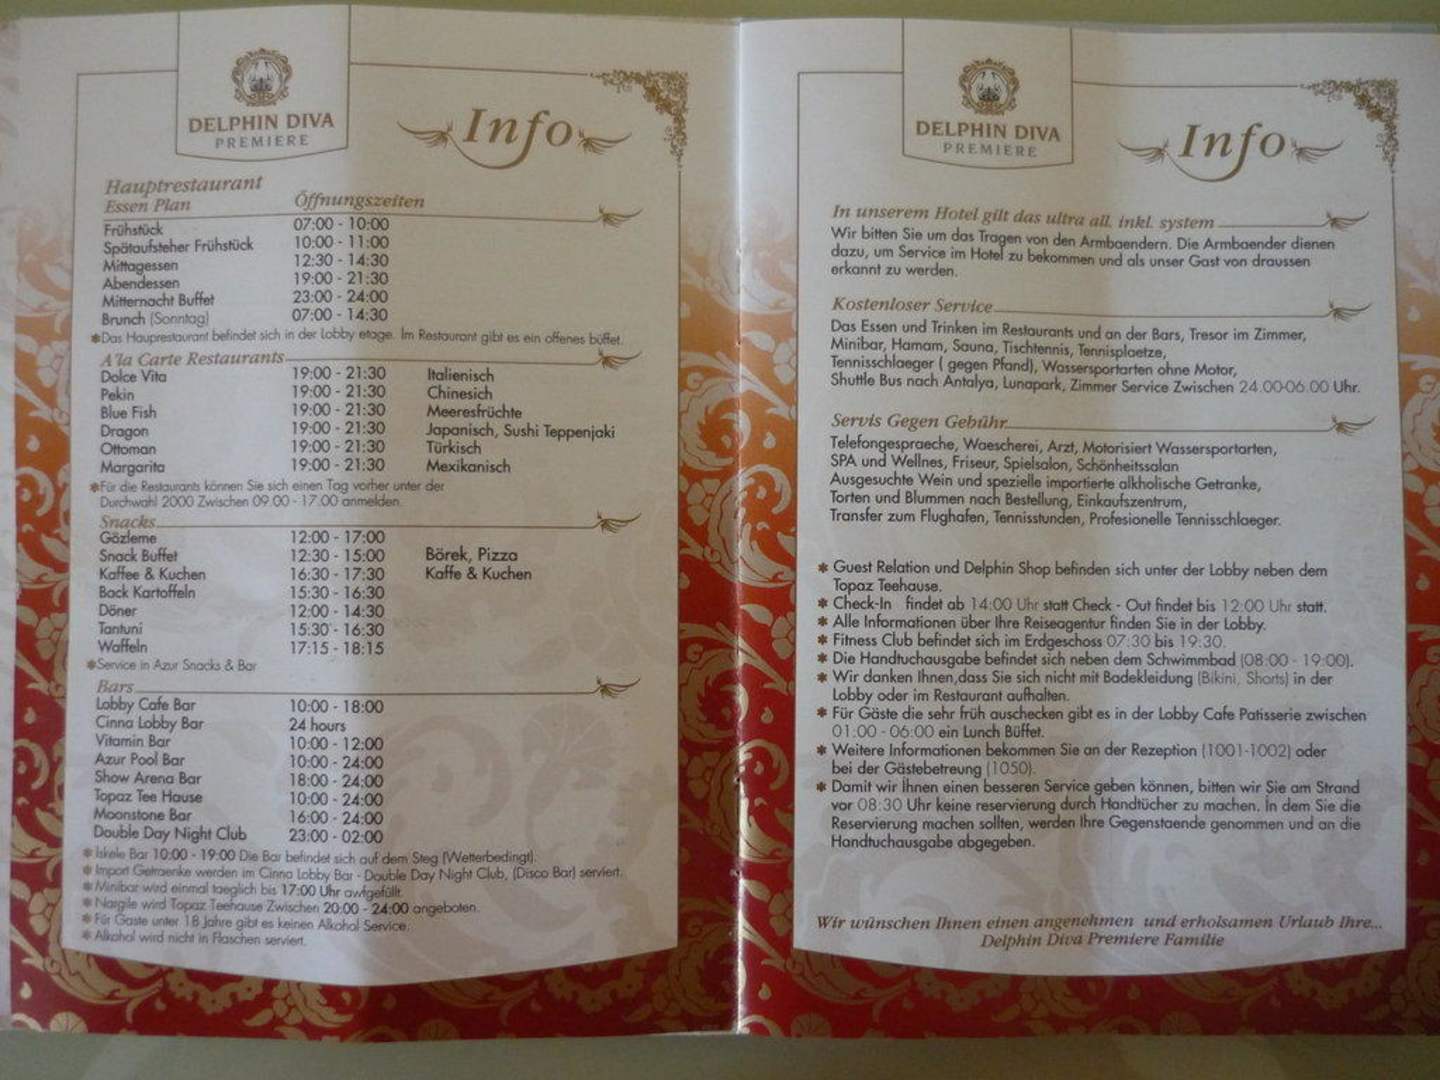 DELPHIN DIVA
PREMIERE
Info
Hauptrestaurant
Essen Plan Öffnungszeiten
Frühstück 07:00 - 10:00
Spätaufsteher Frühstück 10:00 - 11:00
Mittagessen 12:30 - 14:30
Abendessen 19:00 - 21:30
Mitternacht Buffet 23:00 - 24:00
Brunch (Sonntag) 07:00 - 14:30
*Das Hauprestaurant befindet sich in der Lobby etage. Im Restaurant gibt es ein offenes büffet.
A'la Carte Restaurants
Dolce Vita 19:00 - 21:30 Italienisch
Pekin 19:00 - 21:30 Chinesich
Blue Fish 19:00 - 21:30 Meeresfrüchte
Dragon 19:00 - 21:30 Japanisch, Sushi Teppenjaki
Ottoman 19:00 - 21:30 Türkisch
Margarita 19:00 - 21:30 Mexikanisch
*Für die Restaurants können Sie sich einen Tag vorher unter der
Durchwahl 2000 Zwischen 09.00 - 17.00 anmelden.
Snacks
Gözleme 12:00 - 17:00
Snack Buffet 12:30 - 15:00 Börek, Pizza
Kaffee & Kuchen 16:30 - 17:30 Kaffe & Kuchen
Back Kartoffeln 15:30 - 16:30
Döner 12:00 - 14:30
Tantuni 15:30 - 16:30
Waffeln 17:15 - 18:15
*Service in Azur Snacks & Bar
Bars
Lobby Cafe Bar 10:00 - 18:00
Cinna Lobby Bar 24 hours
Vitamin Bar 10:00 - 12:00
Azur Pool Bar 10:00 - 24:00
Show Arena Bar 18:00 - 24:00
Topaz Tee Hause 10:00 - 24:00
Moonstone Bar 16:00 - 24:00
Double Day Night Club 23:00 - 02:00
* İskele Bar 10:00 - 19:00 Die Bar befindet sich auf dem Steg (Wetterbedingt).
* Import Getraenke werden im Cinna Lobby Bar - Double Day Night Club, (Disco Bar) serviert.
* Minibar wird einmal taeglich bis 17:00 Uhr awfgefüllt.
* Nargile wird Topaz Teehause Zwischen 20:00 - 24:00 angeboten.
* Für Gäste unter 18 Jahre gibt es keinen Alkohol Service.
* Alkohol wird nicht in Flaschen serviert.
DELPHIN DIVA
PREMIERE
Info
In unserem Hotel gilt das ultra all. inkl. system
Wir bitten Sie um das Tragen von den Armbaendern. Die Armbaender dienen
dazu, um Service im Hotel zu bekommen und als unser Gast von draussen
erkannt zu werden.
Kostenloser Service
Das Essen und Trinken im Restaurants und an der Bars, Tresor im Zimmer,
Minibar, Hamam, Sauna, Tischtennis, Tennisplaetze,
Tennisschlaeger ( gegen Pfand), Wassersportarten ohne Motor,
Shuttle Bus nach Antalya, Lunapark, Zimmer Service Zwischen 24.00-06.00 Uhr.
Servis Gegen Gebühr
Telefongespraeche, Waescherei, Arzt, Motorisiert Wassersportarten,
SPA und Wellnes, Friseur, Spielsalon, Schönheitssalan
Ausgesuchte Wein und spezielle importierte alkholische Getranke,
Torten und Blummen nach Bestellung, Einkaufszentrum,
Transfer zum Flughafen, Tennisstunden, Profesionelle Tennisschlaeger.
* Guest Relation und Delphin Shop befinden sich unter der Lobby neben dem
Topaz Teehause.
* Check-In findet ab 14:00 Uhr statt Check - Out findet bis 12:00 Uhr statt.
* Alle Informationen über Ihre Reiseagentur finden Sie in der Lobby.
* Fitness Club befindet sich im Erdgeschoss 07:30 bis 19:30.
* Die Handtuchausgabe befindet sich neben dem Schwimmbad (08:00 - 19:00).
* Wir danken Ihnen,dass Sie sich nicht mit Badekleidung (Bikini, Shorts) in der
Lobby oder im Restaurant aufhalten.
* Für Gäste die sehr früh auschecken gibt es in der Lobby Cafe Patisserie zwischen
01:00 - 06:00 ein Lunch Büffet.
* Weitere Informationen bekommen Sie an der Rezeption (1001-1002) oder
bei der Gästebetreung (1050).
* Damit wir Ihnen einen besseren Service geben können, bitten wir Sie am Strand
vor 08:30 Uhr keine reservierung durch Handtücher zu machen. İn dem Sie die
Reservierung machen sollten, werden Ihre Gegenstaende genommen und an die
Handtuchausgabe abgegeben.
Wir wünschen Ihnen einen angenehmen und erholsamen Urlaub Ihre...
Delphin Diva Premiere Familie